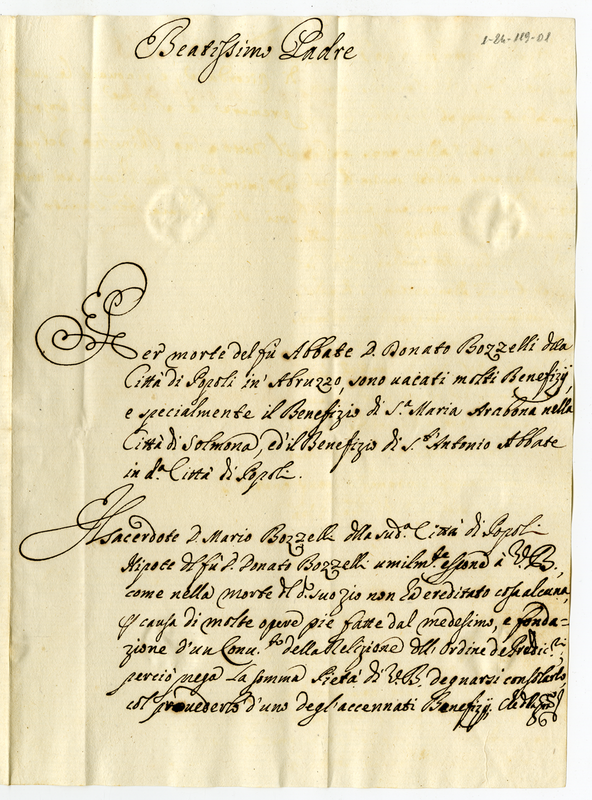 Beatissimo Padre
1-24-119-01
Per morte del fù Abbate D. Donato Bozzelli della
Città di Popoli in Abruzzo, sono vacati molti Benefizij,
e specialmente il Benefizio di S.ta Maria Arabona nella
Città di Solmona, ed il Benefizio di S.t Antonio Abbate
in d.a Città di Popoli.
Il sacerdote D. Mario Bozzelli della sud.a Città di Popoli
Nipote del fù D. Donato Bozzelli umilm.te espone à V.B.,
come nella morte del d.o suo zio non hà ereditato cosa alcuna,
causa di molte opere pie fatte dal medesimo, e fonda=
zione d'un Conv.to della Religione dell Ordine de Predic.ri;
perciò prega La somma Pietà di V.B. degnarsi consolarlo
col provederlo d'uno degl'accennati Benefizij.